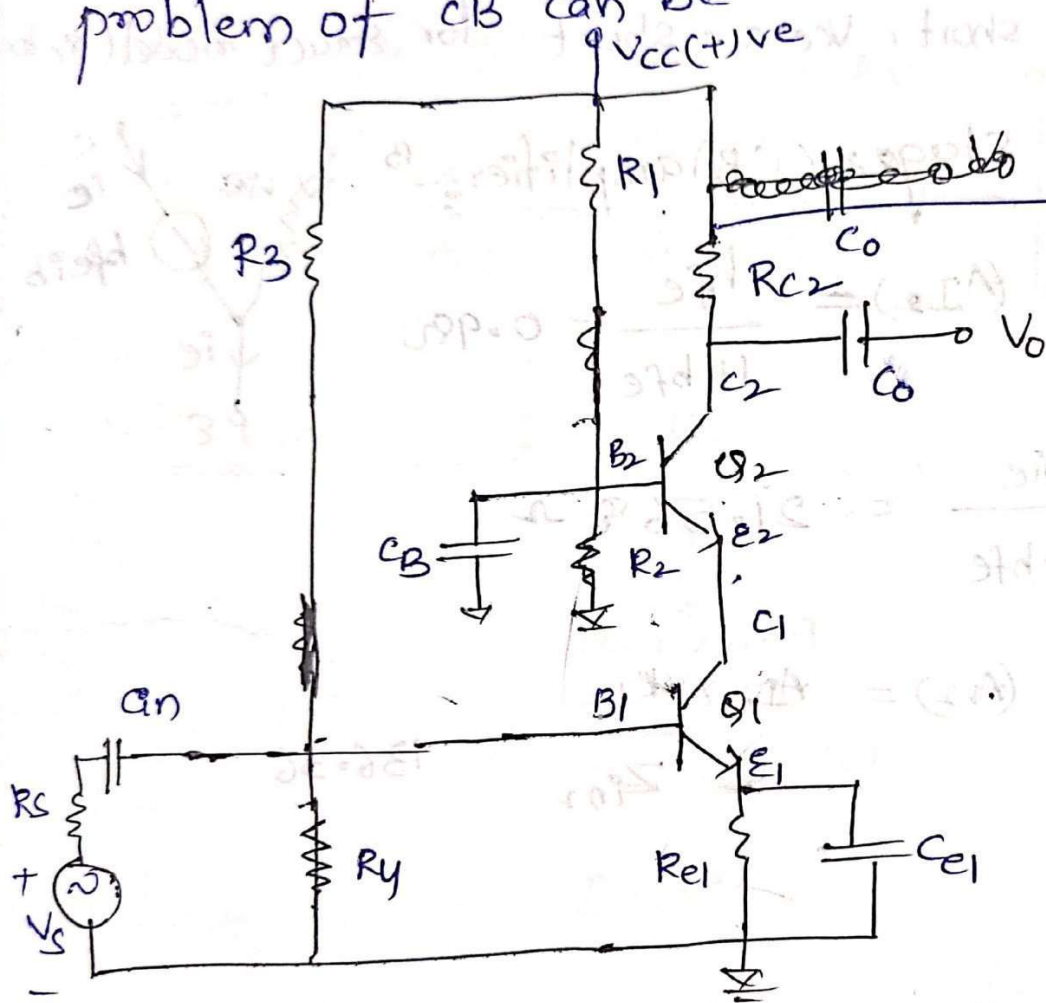 problem of CB can be
VCC(+)ve
R1
Vo
Co
R3
RC2
Vo
Co
C2
B2
Q2
CB
R2
E2
C1
Cin
B1
Q1
E1
RS
+
Ry
Re1
Ce1
VS
-